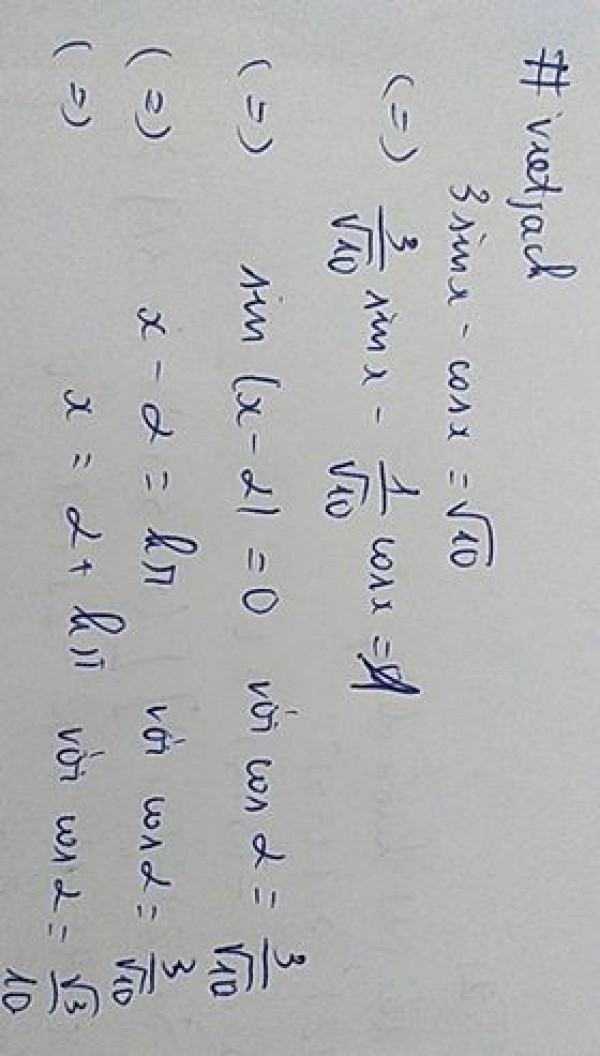 # vietjack
3 sin x - cos x = √10
(=) 3/√10 sin x - 1/√10 cos x = 1
(=) sin (x - α) = 0 với cos α = 3/√10
(=) x - α = kπ với cos α = 3/√10
(=) x = α + kπ với cos α = √3/10